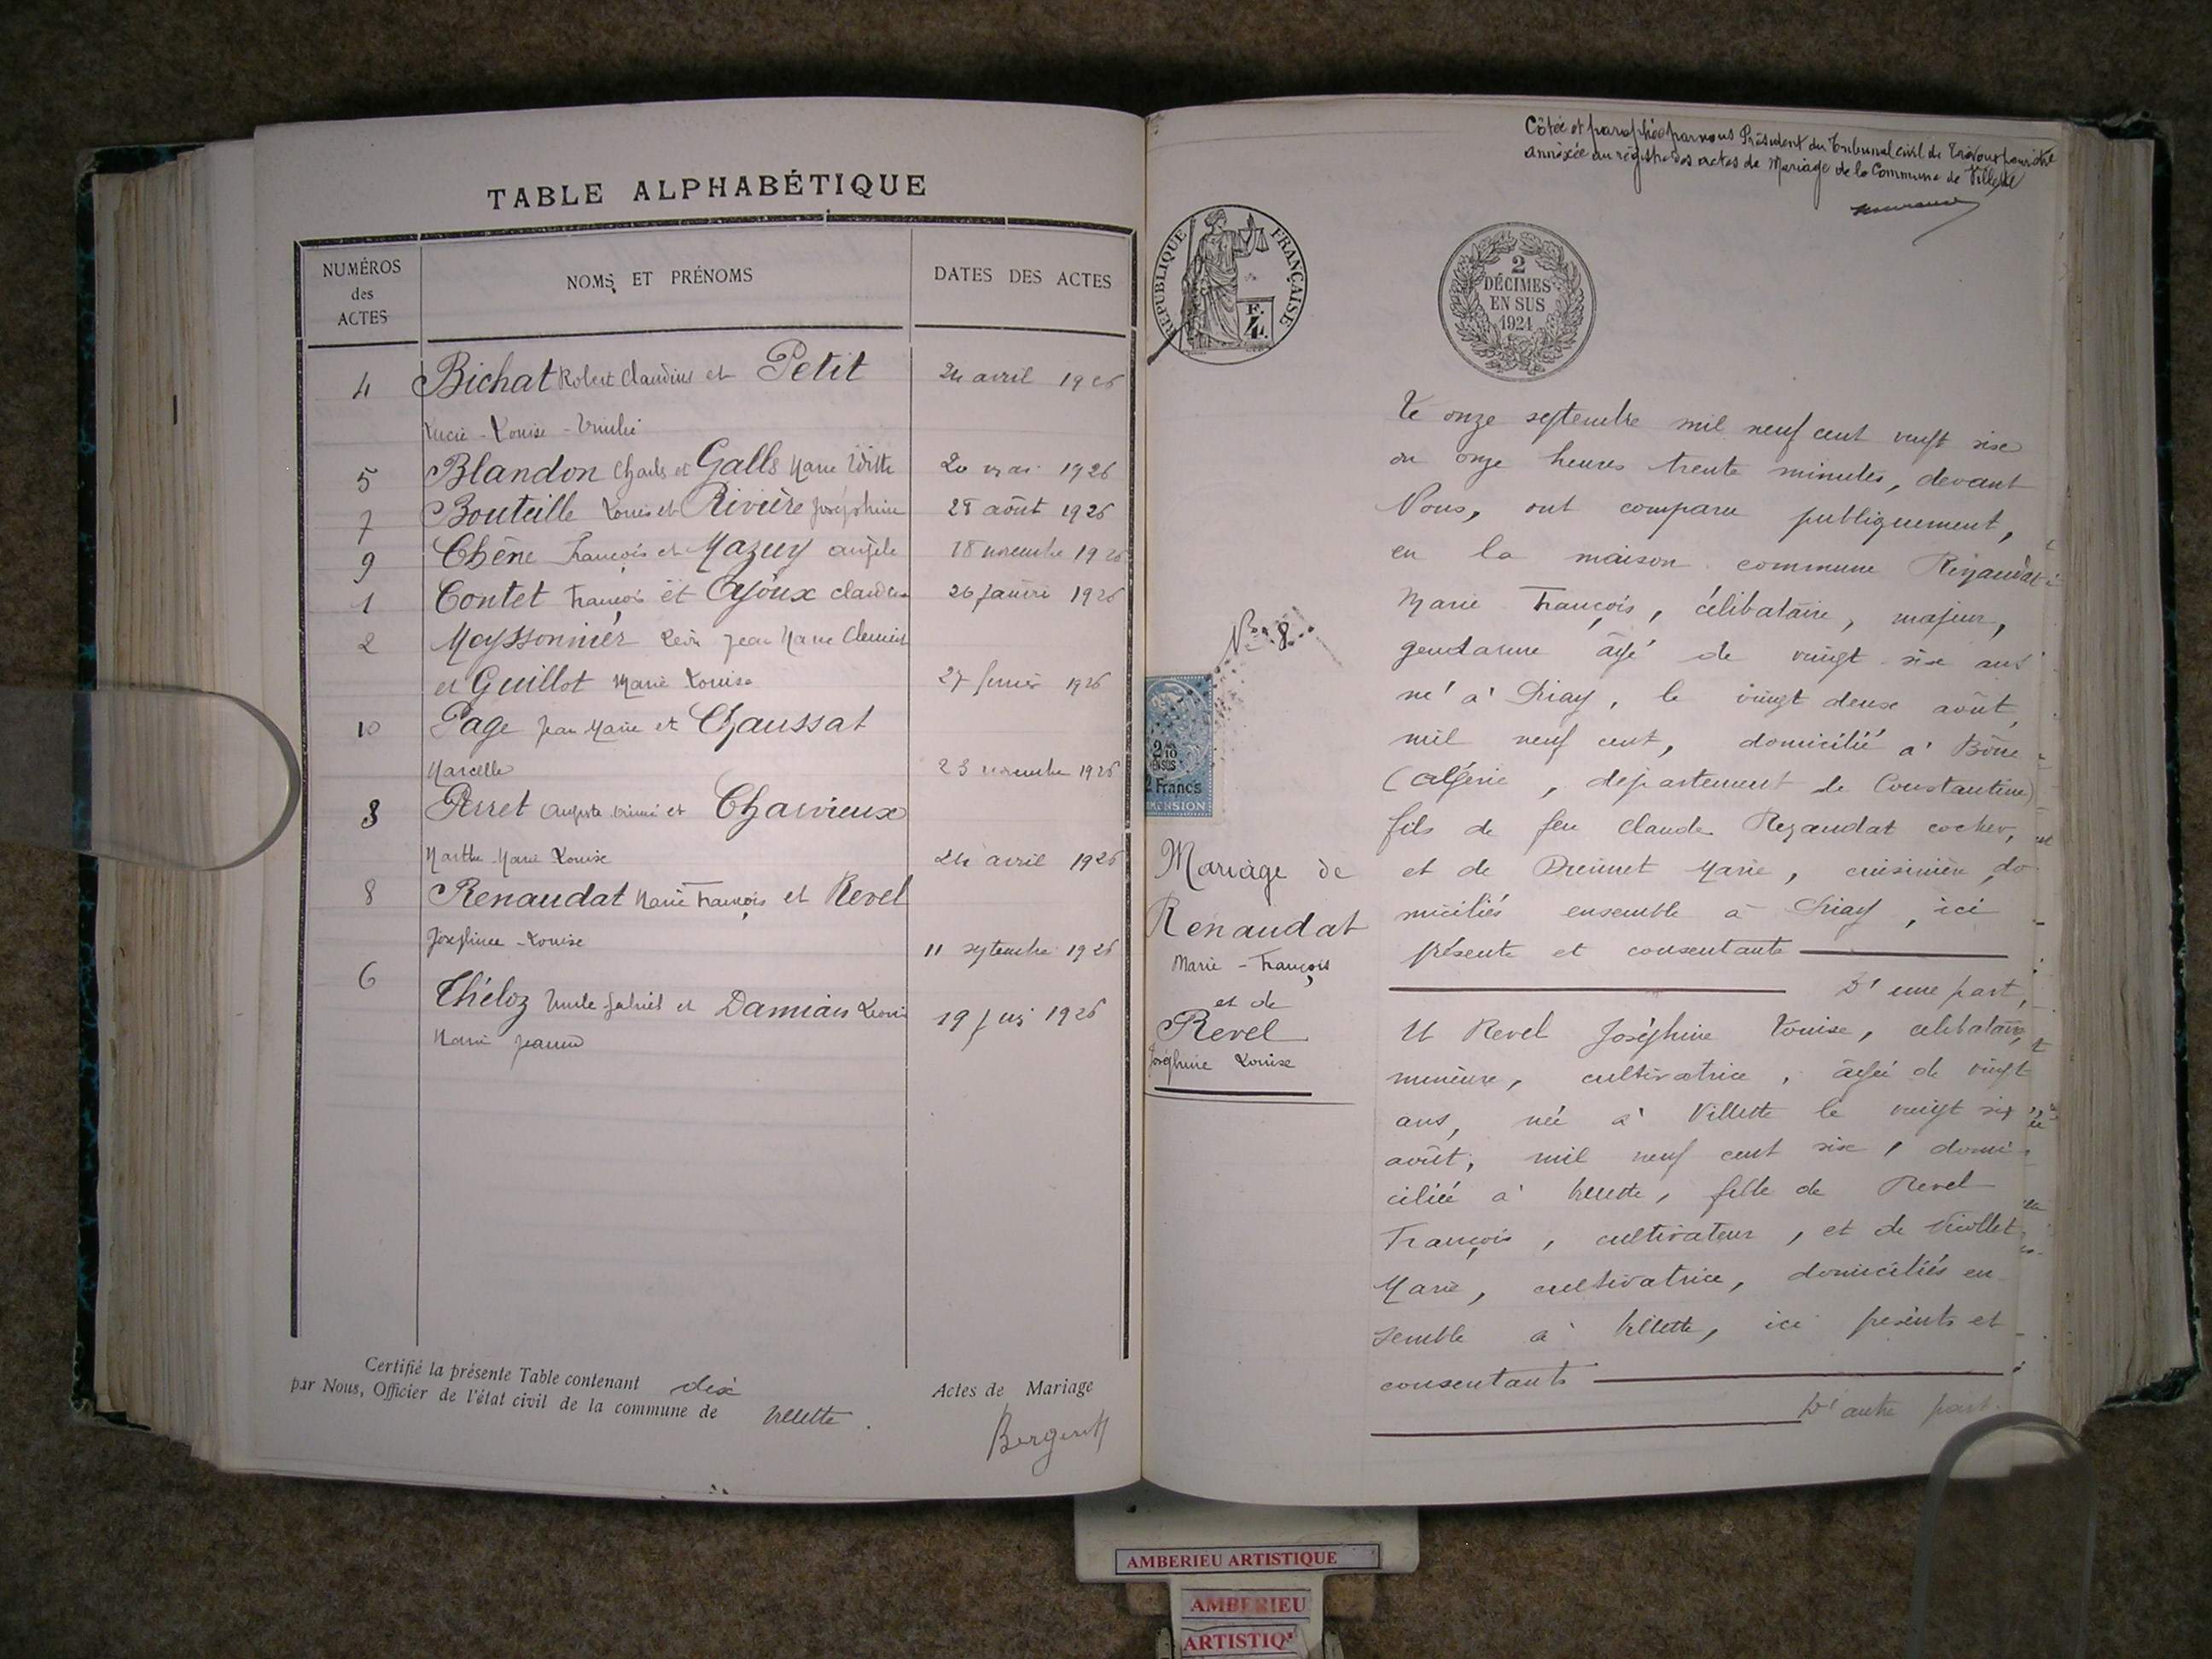 TABLE ALPHABÉTIQUE
NUMÉROS
des
ACTES
NOMS ET PRÉNOMS
DATES DES ACTES
4 Bichat Robert Claudius et Petit 24 avril 1926
Lucie - Louise - Emilie
5 Blandon Charles et Galls Marie 20 mai 1926
7 Bouteille Louis et Rivière Joséphine 28 août 1926
9 Chêne François et Mazuy angèle 18 novembre 1926
1 Contet François et Ajoux 26 1926
2 Meyssonnier Jean Marie
et Guillot Marie Louise 27 1926
10 Page Jean Marie et Chaussat
Marcelle 23 novembre 1926
3 Perret Auguste et Charvieux
Marthe Marie Louise 24 avril 1926
8 Renaudat Marie François et Revel
Joséphine - Louise 11 septembre 1926
6 Théloz Gabriel et Damians 19 juin 1926
Marie Jeanne
Certifié la présente Table contenant dix Actes de Mariage
par Nous, Officier de l'état civil de la commune de Villette.
Côtée et paraphée par nous Président du Tribunal civil de Trévoux pour être
annexée au régistre des actes de Mariage de la Commune de Villette
REPUBLIQUE FRANÇAISE
2
DÉCIMES
EN SUS
1921
N° 8.
2 Francs
DIMENSION
Mariage de
Renaudat
Marie - François
et de
Revel
Joséphine Louise
Le onze septembre mil neuf cent vingt six
on onze heures trente minutes, devant
Nous, ont comparu publiquement,
en la maison commune
Marie François, célibataire, majeur,
gendarme âgé de vingt six ans
né à le vingt deux août,
mil neuf cent, domicilié à Bône
(Algérie, département de Constantine)
fils de feu Claude cocher,
et de Marie, cuisinière, do-
miciliés ensemble à , ici
présente et consentante
D'une part,
Et Revel Joséphine Louise, célibataire,
mineure, cultivatrice, âgée de vingt
ans, née à Villette le vingt six
août, mil neuf cent six, domi-
ciliée à Villette, fille de Revel
François, cultivateur, et de
Marie, cultivatrice, domiciliés en-
semble à Villette, ici présents et
consentants
D'autre part.
AMBERIEU ARTISTIQUE
AMBERIEU
ARTISTIQ